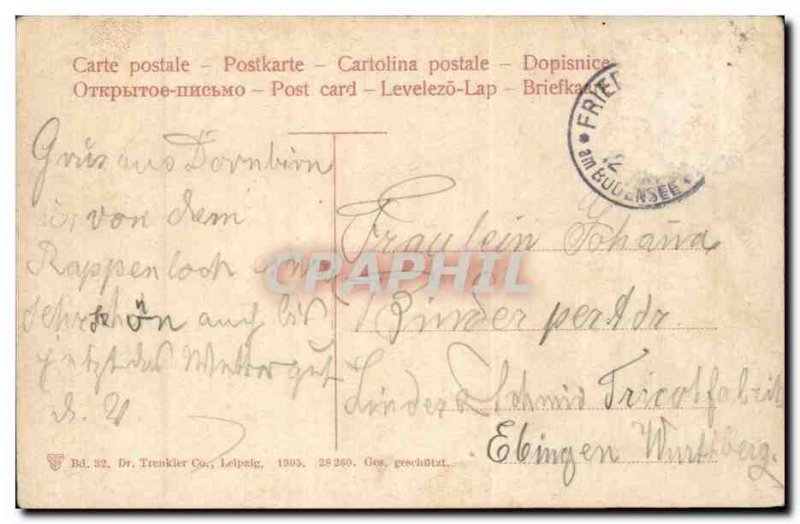 Carte postale – Postkarte – Cartolina postale – Dopisnice
Открытое-письмо – Post card – Levelező-Lap – Briefkaart
FRIED
am BODENSEE
Grüs aus Dornbirn
von dem
Rappenloch
schön auch bis
jetzt das Wetter gut
Fräulein Johana
Binder per Adr.
Linder & Schmid Tricotfabrik
Ebingen Wurttberg.
CPAPHIL
Bd. 32. Dr. Trenkler Co., Leipzig. 1905. 28 260. Ges. geschützt.